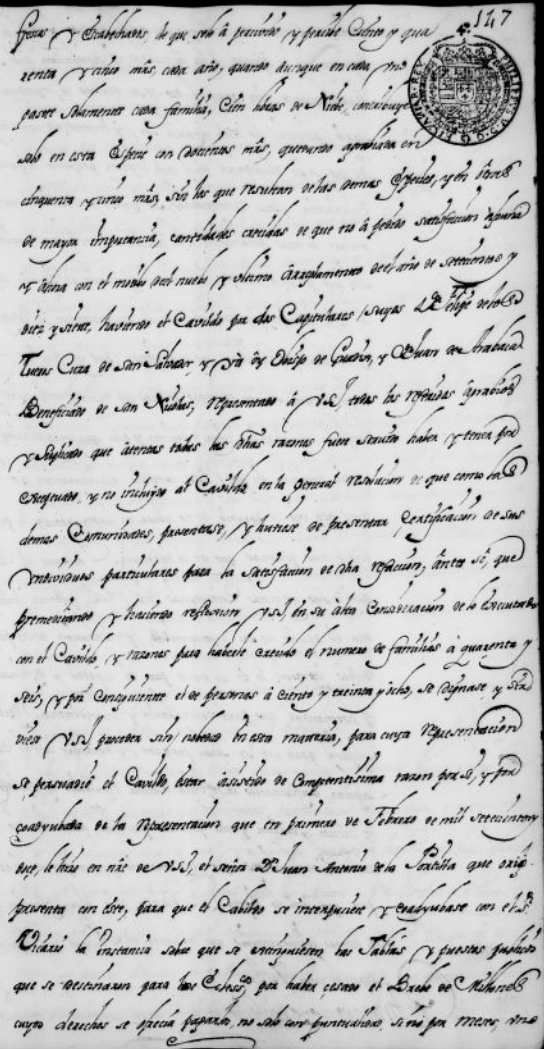 147
frescas y Escabechados de que solo à percivido y percibe Ciento y qua
renta y cinco mrs, cada año, quando aunque en cada uno
gaste solamente cada familia, Cien libras de Nieve, contribuye
solo en esta Especie con Docientos mrs, quedando agraviado en
cinquenta y cinco mrs, sin los que resultan de las demas Especies, y en otras
de mayor importancia, cantidades crecidas de que no à pedido satisfacion alguna
y ahora con el motivo del nuevo y ultimo Arreglamento de el año de Setecientos y
diez y siete, haviendo el Cavildo por dos Capitulares suyos Dn Felipe de los
Tueros Cura de San Salvador, y Dn Juan de Arabaca
Beneficiado de San Nicolas, representado à VSI, todos los referidos agravios
y Suplicado que atentas todas las dhas razones fuese servido haber y tener por
exceptuado, y no incluydo al Cavildo, en la general resolucion de que como las
demas Comunidades, presentase, y huviese de presentar Certificacion de sus
Yndividuos particulares para la Satisfacion de dha refaccion, ante si, que
premeditando y haciendo reflexion VSI, en su alta Consideracion de lo Executado
con el Cavildo, y razones para haberle crecido el numero de familias à quarenta y
seis, y por Consiguiente el de personas à ciento y treinta y ocho, se dignase y sir
viese VSI, proceder sin novedad en esta materia, para cuya representacion
se persuadio el Cavildo, estar asistido de Competentissima razon por si, y por
coadyubada de la representacion que en primero de Febrero de mil Setecientos y
doce, le hizo en nre de VSI, el señor Dn Juan Antonio de la Portilla que orig.
presenta con este, para que el Cabildo se interpusiese y coadyubase con el Sr
Vicario la instancia sobre que se extinguiesen las Tablas y puestos publicos
que se destinaron para los Eclesscos por haber cesado el Brebe de Millones
cuyos derechos se ofrecia pagarlos, no solo con puntualidad, sino por meses, uno